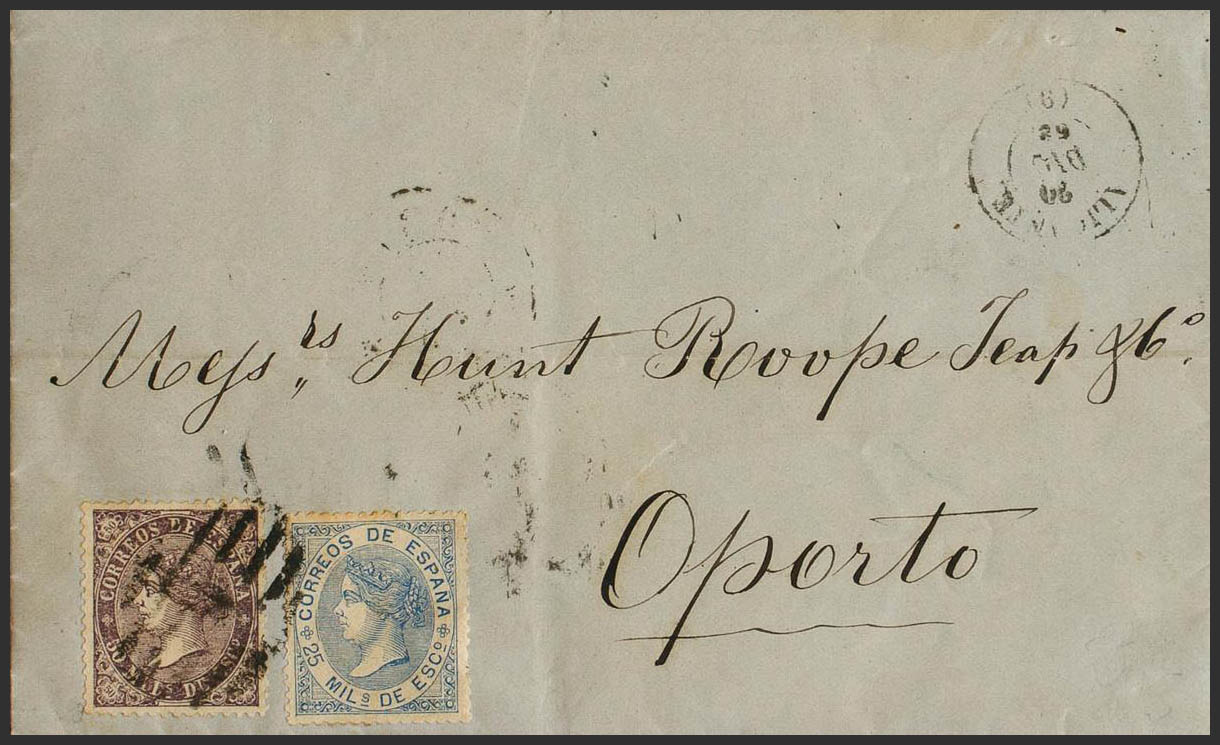 (6)
29
DIC
Mess.rs Hunt Roope Teap & Cº.
Oporto
CORREOS DE ESPAÑA
50 MILS DE ESCO
CORREOS DE ESPAÑA
25 MILS DE ESCO